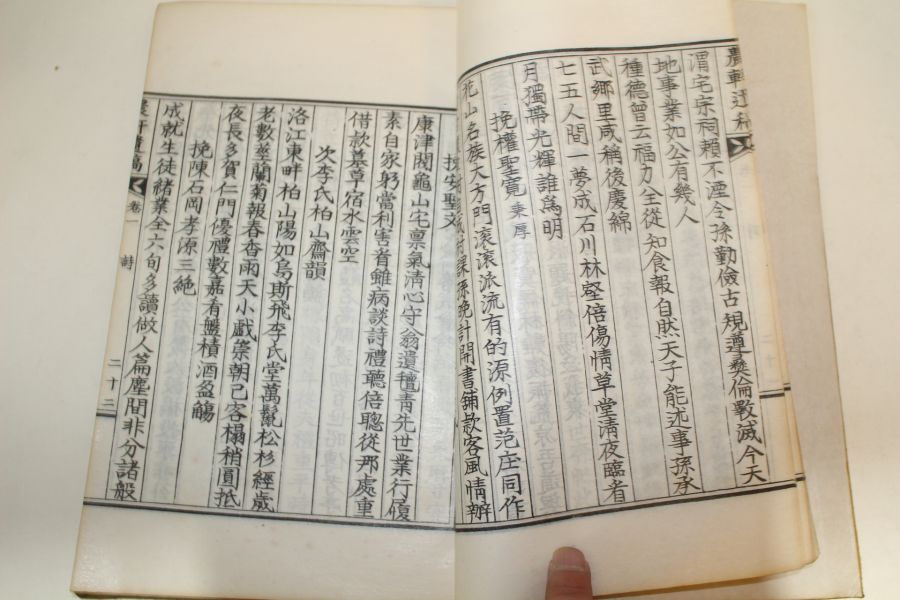 農軒遺稿
渭宅宗祠賴不湮令孫勤儉古規遵彜倫斁滅今天
地事業如公有幾人
種德曾云福力全從知食報自然天子能述事孫承
武鄉里咸稱後慶綿
七五人間一夢成石川林壑倍傷情草堂清夜臨者
月獨帶光輝誰爲明
挽權聖寬 秉厚
花山名族大方門滚滚派流有的源例置范庄同作
課孫晚計開書舖款客風情辦
挽安聖文
康津閣龜山宅稟氣淸心守翁遺氊靑先世業行履
素自家躬當利害省雖病談詩禮聽倍聰從那處重
借款墓草宿水雲空
次李氏柏山齋韻
洛江東畔柏山陽如鳥斯飛李氏堂萬鬣松杉經歲
老數莖蘭菊報春香雨天小戱崇朝己客榻稍圓抵
夜長多賀仁門優禮數嘉看盤積酒盈觴
挽陳石岡孝源三絶
成就生徒緖業全六旬多讀做人篇塵間非分諸般
農軒遺稿 卷一 詩 二十二